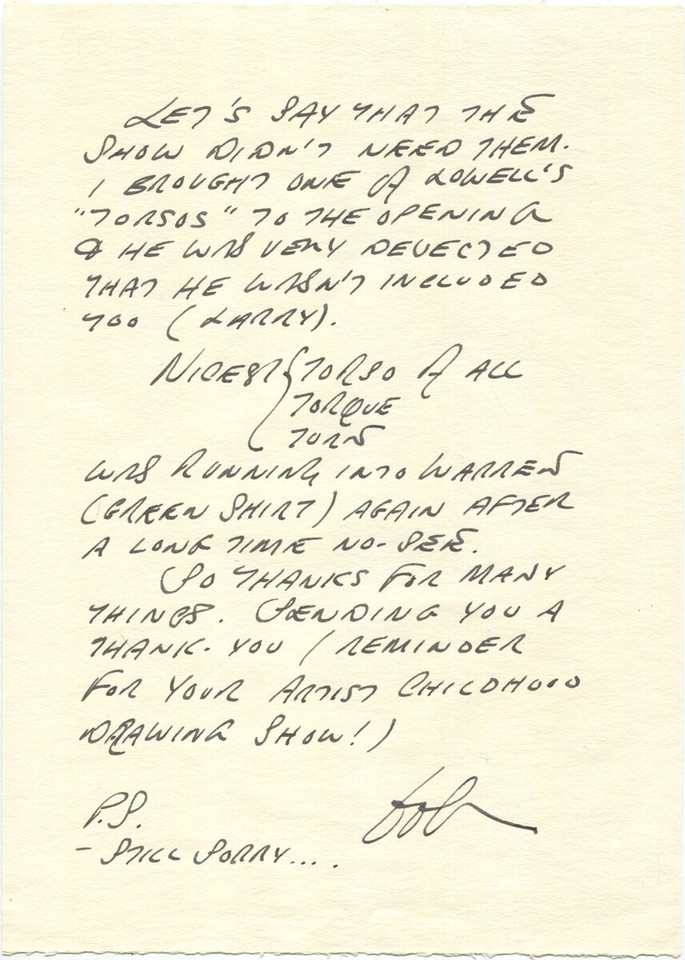 LET'S SAY THAT THE
SHOW DIDN'T NEED THEM.
I BROUGHT ONE OF LOWELL'S
"TORSOS" TO THE OPENING
& HE WAS VERY DEJECTED
THAT HE WASN'T INCLUDED
TOO (LARRY).
NICEST { TORSO OF ALL
TORQUE
TURN
WAS RUNNING INTO WARREN
(GREEN SHIRT) AGAIN AFTER
A LONG TIME NO-SEE.
SO THANKS FOR MANY
THINGS. SENDING YOU A
THANK-YOU (REMINDER
FOR YOUR ARTIST CHILDHOOD
DRAWING SHOW!)
Bob
P.S.
- STILL SORRY....